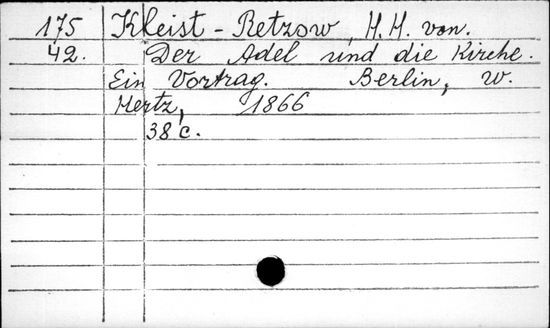 175 Kleist-Retzow, H. H. von.
42. Der Adel und die Kirche.
Ein Vortrag. Berlin, W.
Hertz, 1866
38 c.